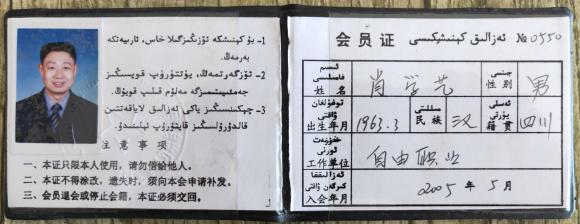 1- بۇ كېنىشكە ئۆزىڭىزگىلا خاس، ئارىيەتكە
بەرمەڭ.
2- ئۆزگەرتمەڭ، يۈتتۈرۈپ قويسىڭىز
جەمئىيىتىمىزگە مەلۇم قىلىپ قويۇڭ.
3- چېكىنسىڭىز ياكى ئەزالىق لاياقىتىنى
قالدۇرۇلسىڭىز قايتۇرۇپ تاپشۇرۇڭ.
注意事项
一、本证只限本人使用，请勿借给他人。
二、本证不得涂改，遗失时，须向本会申请补发。
三、会员退会或停止会籍，本证必须交回。
会员证 ئەزالىق كېنىشكىسى № 0550
ئىسىم فامىلىسى 姓名 肖学艺 جىنسى 性别 男
تۇغۇلغان ۋاقتى 出生年月 1963.3 مىللىتى 民族 汉 ئەسلى يۇرتى 籍贯 四川
خىزمەت ئورنى 工作单位 自由职业
ئەزالىققا كىرگەن ۋاقتى 入会年月 2005年5月